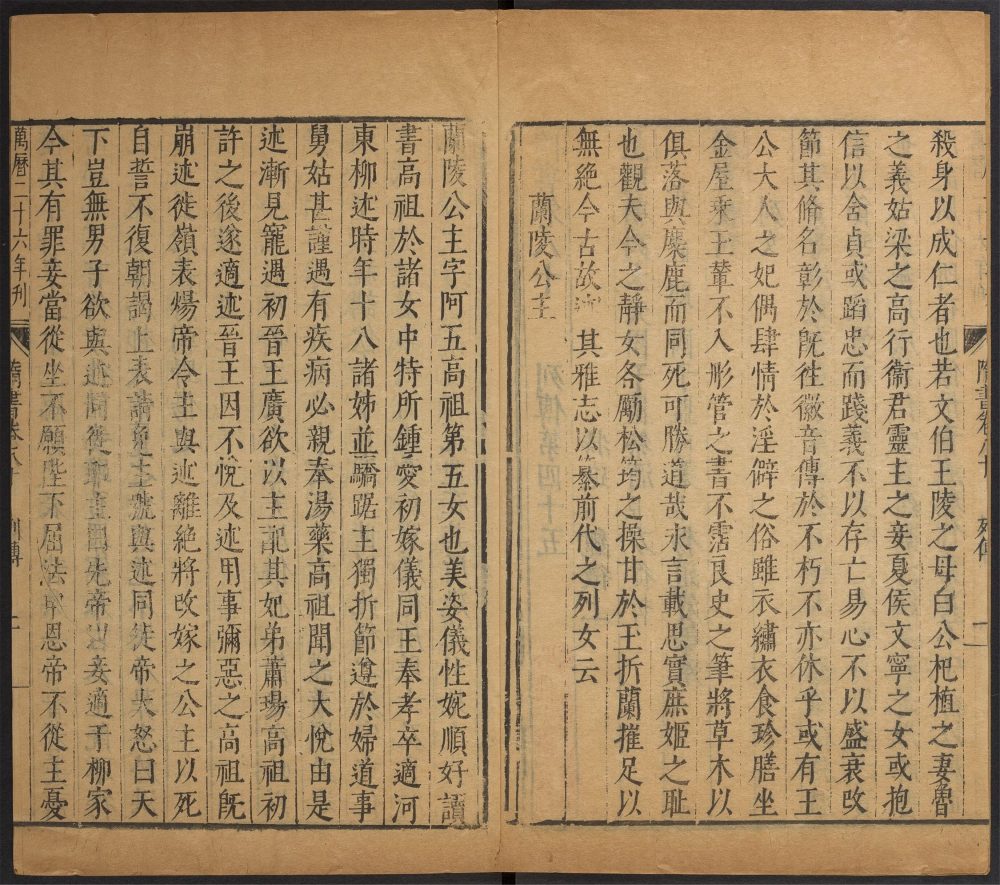 殺身以成仁者也若文伯王陵之母白公杞植之妻魯
之義姑梁之高行衛君靈主之妾夏侯文寧之女或抱
信以含貞或蹈忠而踐義不以存亡易心不以盛衰改
節其脩名彰於既往徽音傳於不朽不亦休乎或有王
公大人之妃偶肆情於淫僻之俗雖衣繡衣食珍膳坐
金屋乗玉輦不入彤管之書不霑良史之筆將草木以
俱落與麋鹿而同死可勝道哉永言載思實庶姬之耻
也觀夫今之靜女各勵松筠之操甘於玉折蘭摧足以
無絕今古故 其雅志以纂前代之列女云
蘭陵公主
隋書卷八十 列傳 一
蘭陵公主字阿五高祖第五女也美姿儀性婉順好讀
書高祖於諸女中特所鍾愛初嫁儀同王奉孝卒適河
東柳述時年十八諸姊並驕踞主獨折節遵於婦道事
舅姑甚謹遇有疾病必親奉湯藥高祖聞之大悅由是
述漸見寵遇初晉王廣欲以主配其妃弟蕭瑒高祖初
許之後遂適述晉王因不悅及述用事彌惡之高祖既
崩述徙嶺表煬帝令主與述離絕將改嫁之公主以死
自誓不復朝謁上表請免主號與述同徙帝大怒曰天
下豈無男子欲與述同徙耶主曰先帝以妾適于柳家
今其有罪妾當從坐不願陛下屈法申恩帝不從主憂
萬曆二十六年刊 隋書卷八十 列傳 二